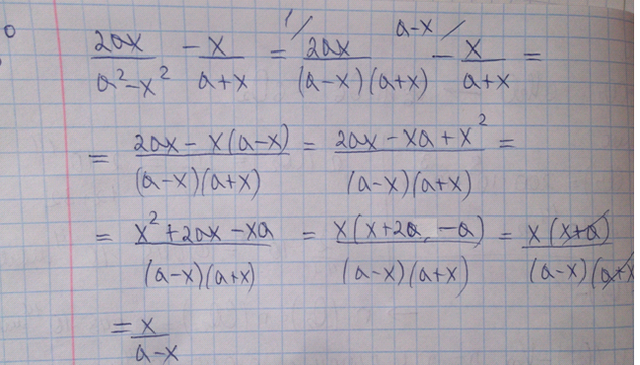 2ax/(a²-x²) - x/(a+x) = 1/ 2ax/((a-x)(a+x)) - a-x/ x/(a+x) =
= (2ax - x(a-x))/((a-x)(a+x)) = (2ax - xa + x²)/((a-x)(a+x)) =
= (x² + 2ax - xa)/((a-x)(a+x)) = x(x+2a-a)/((a-x)(a+x)) = x(x+a)/((a-x)(a+x))
= x/(a-x)